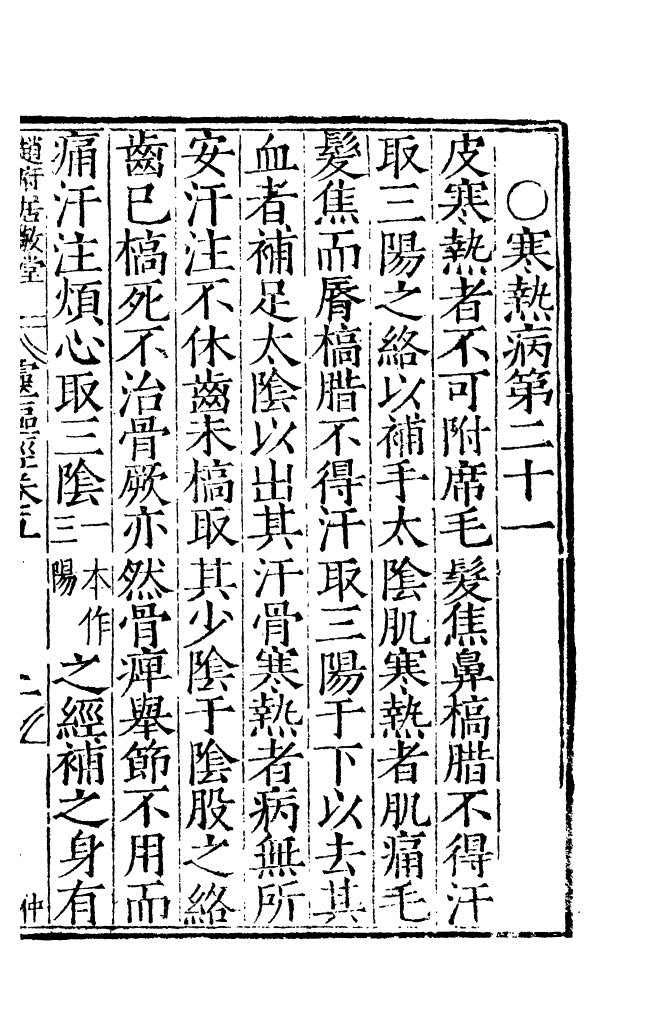 ○寒熱病第二十一
皮寒熱者不可附席毛髮焦鼻槁腊不得汗
取三陽之絡以補手太陰肌寒熱者肌痛毛
髮焦而脣槁腊不得汗取三陽于下以去其
血者補足太陰以出其汗骨寒熱者病無所
安汗注不休齒未槁取其少陰于陰股之絡
齒已槁死不治骨厥亦然骨痺舉節不用而
痛汗注煩心取三陰一本作三陽之經補之身有
趙府居敬堂 靈樞經卷五 仲